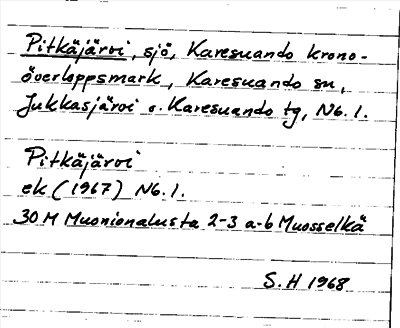 Pitkäjärvi, sjö, Karesuando krono-
överloppsmark, Karesuando sn,
Jukkasjärvi o. Karesuando tg, Nb. l.
Pitkäjärvi
ek (1967) Nb. l.
30 M Muonionalusta 2-3 a-b Muosselkä
S. H 1968